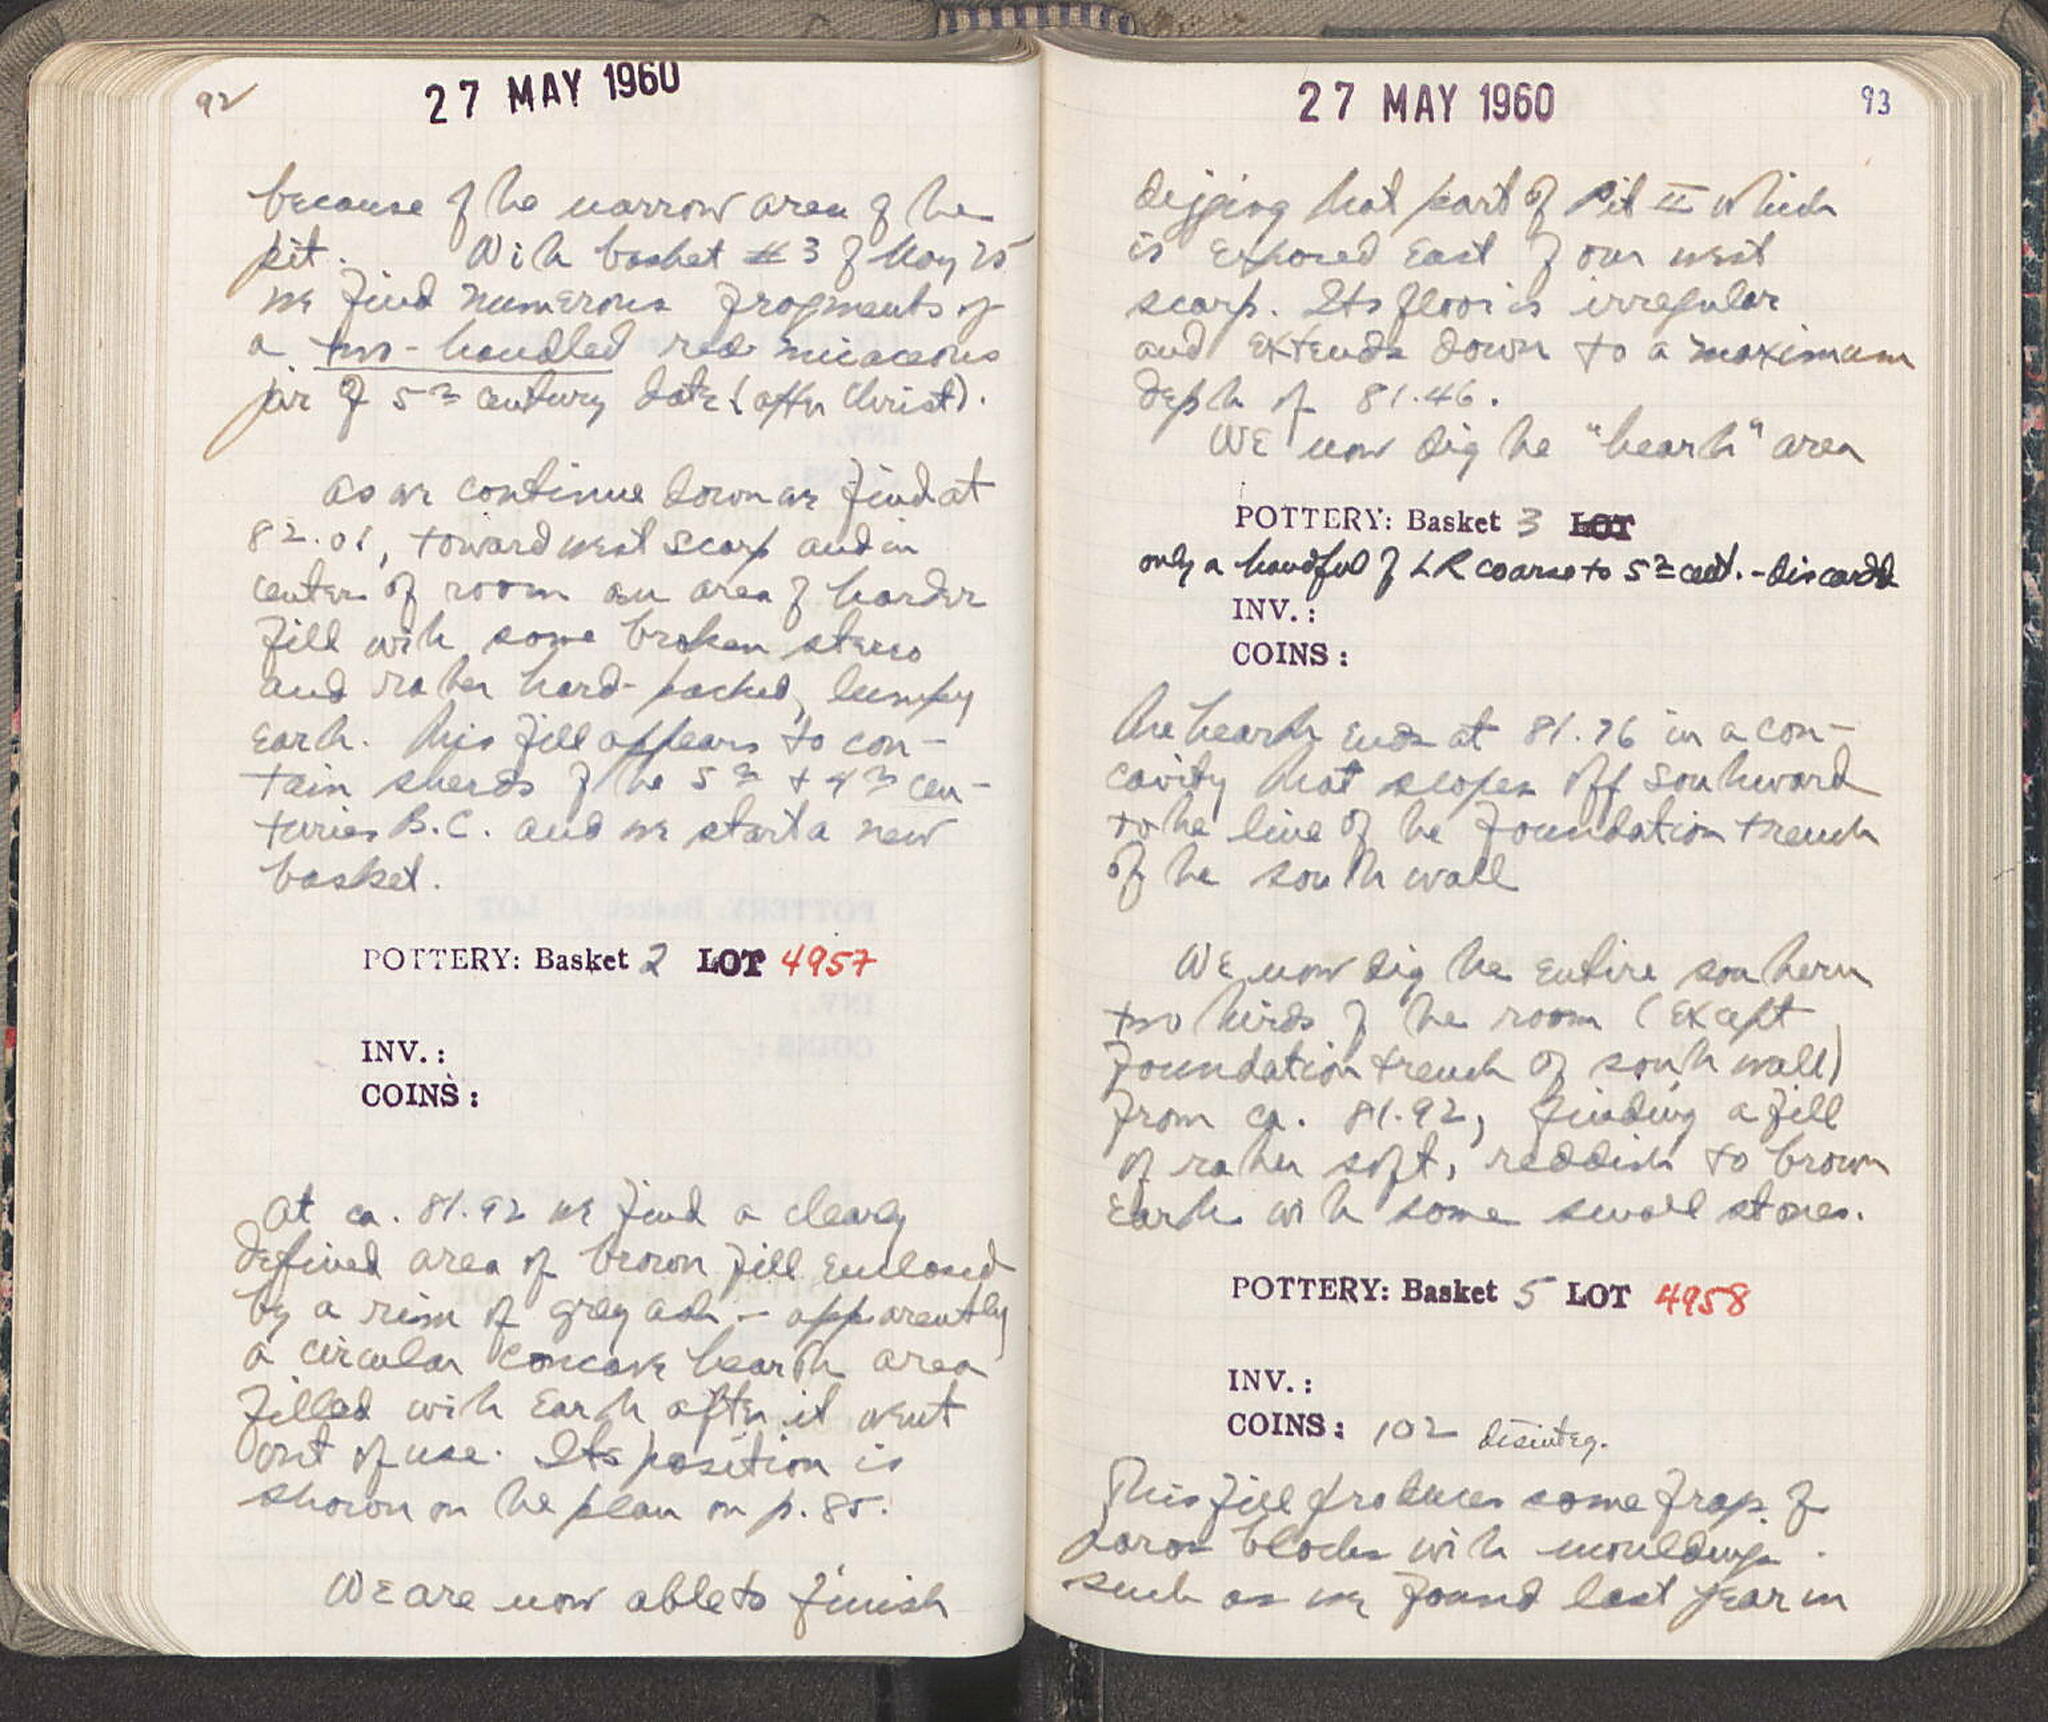 92
27 MAY 1960
because of the narrow area of the
pit. With basket #3 of May 25
we find numerous fragments of
a two-handled red micaceous
jar of 5th century date (after Christ).
As we continue down we find at
82.01, toward west scarp and in
center of room an area of harder
fill with some broken stereo
and rather hard-packed, lumpy
earth. This fill appears to con-
tain sherds of the 5th + 4th cen-
turies B.C. and we start a new
basket.
POTTERY: Basket 2 LOT 4957
INV.:
COINS:
At ca. 81.92 we find a clearly
defined area of brown fill enclosed
by a rim of grey ash - apparently
a circular concave hearth area
filled with earth after it went
out of use. Its position is
shown on the plan on p. 85.
We are now able to finish
27 MAY 1960
93
digging that part of Pit II which
is exposed East of our west
scarp. Its floor is irregular
and extends down to a maximum
depth of 81.46.
We now dig the "hearth" area
POTTERY: Basket 3 LOT
only a handful of LR coarse to 5th cent. - discarded
INV.:
COINS:
The hearth ends at 81.76 in a con-
cavity that slopes off southward
to the line of the foundation trench
of the south wall
We now dig the entire southern
two thirds of the room (except
foundation trench of south wall)
from ca. 81.92, finding a fill
of rather soft, reddish to brown
earth with some small stones.
POTTERY: Basket 5 LOT 4958
INV.:
COINS: 102 disinteg.
This fill produces some frags. of
poros blocks with mouldings
such as we found last year in